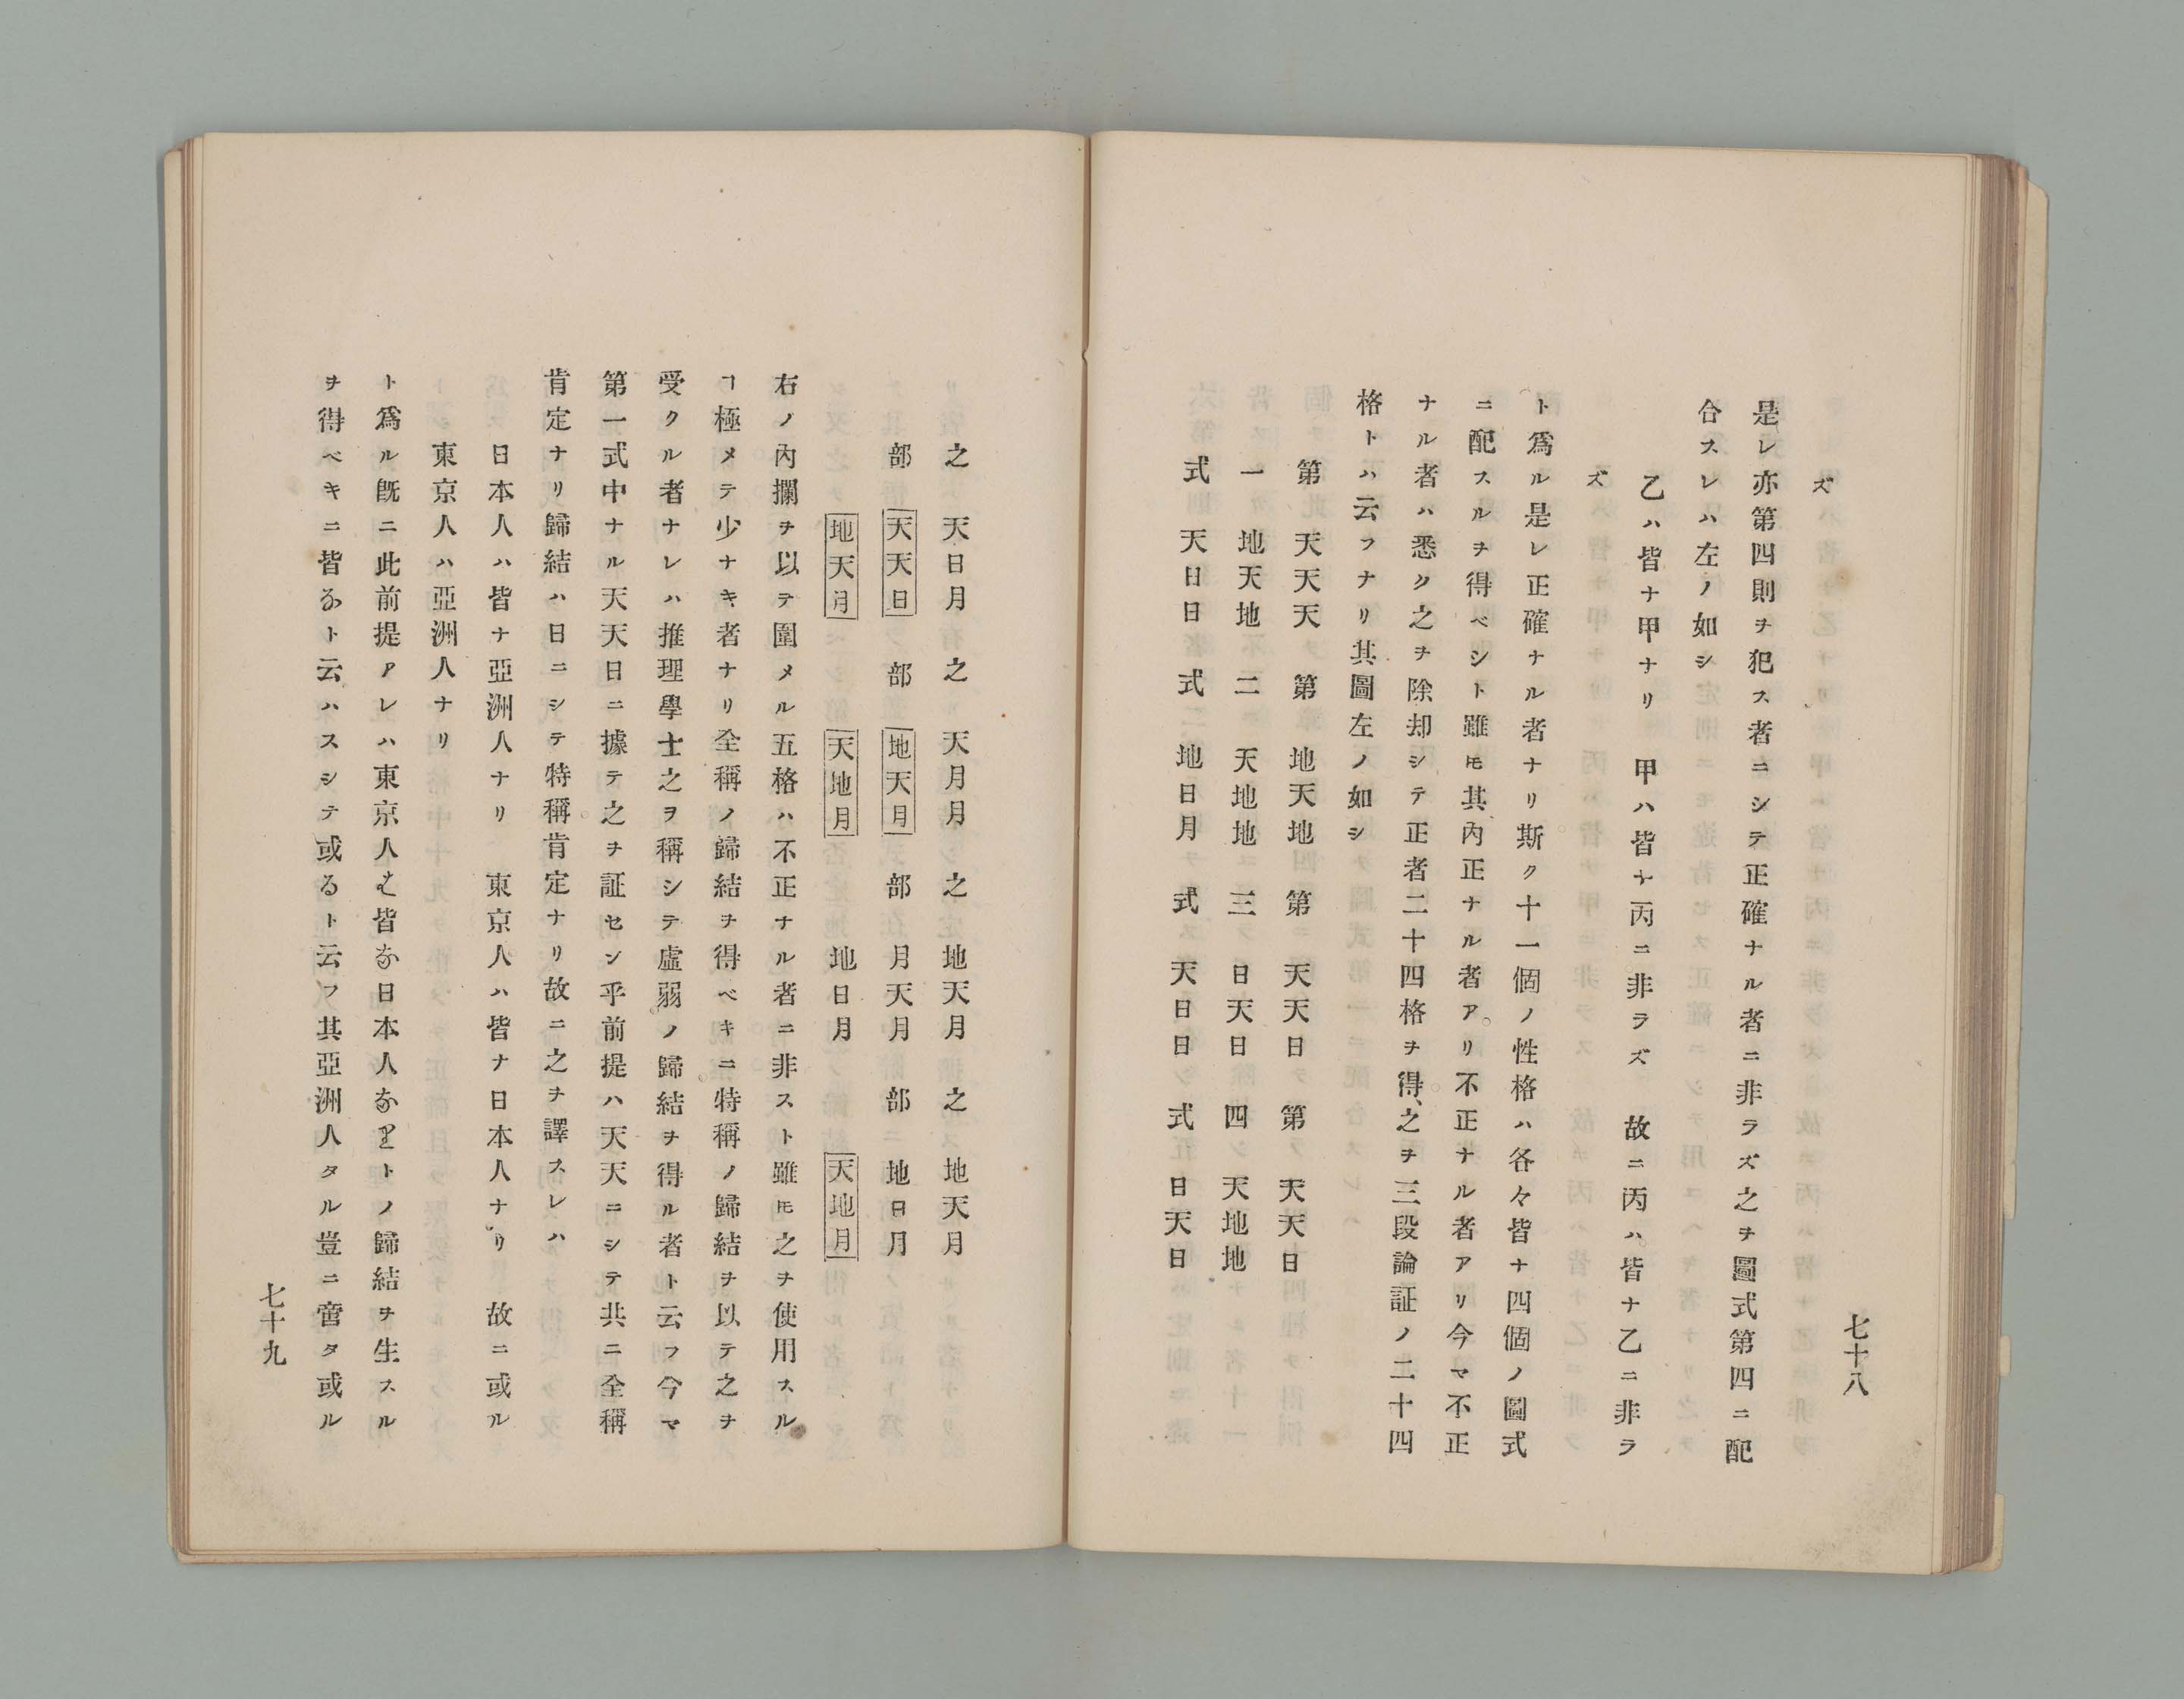 七十八
ズ
是レ亦第四則ヲ犯ス者ニシテ正確ナル者ニ非ラズ之ヲ圖式第四ニ配
合スレハ左ノ如シ
乙ハ皆ナ甲ナリ　甲ハ皆ナ丙ニ非ラズ　故ニ丙ハ皆ナ乙ニ非ラ
ズ
ト爲ル是レ正確ナル者ナリ斯ク十一個ノ性格ハ各々皆ナ四個ノ圖式
ニ配スルヲ得ベシト雖𪜈其內正ナル者アリ不正ナル者アリ今マ不正
ナル者ハ悉ク之ヲ除却シテ正者二十四格ヲ得、之ヲ三段論証ノ二十四
格トハ云フナリ其圖左ノ如シ
第　天天天　第　地天地　第　天天日　第　天天日
一　地天地　二　天地地　三　日天日　四　天地地
式　天日日　式　地日月　式　天日日　式　日天日
之　天日月　之　天月月　之　地天月　之　地天月
部　天天日　部　地天月　部　月天月　部　地日月
地天月　天地月　地日月　天地月
右ノ內攔ヲ以テ圍メル五格ハ不正ナル者ニ非スト雖𪜈之ヲ使用スル
ヿ極メテ少ナキ者ナリ全稱ノ歸結ヲ得ベキニ特稱ノ歸結ヲ以テ之ヲ
受クル者ナレハ推理學士之ヲ稱シテ虛弱ノ歸結ヲ得ル者ト云フ今マ
第一式中ナル天天日ニ據テ之ヲ証セン乎前提ハ天天ニシテ共ニ全稱
肯定ナリ歸結ハ日ニシテ特稱肯定ナリ故ニ之ヲ譯スレハ
日本人ハ皆ナ亞洲人ナリ　東京人ハ皆ナ日本人ナリ　故ニ或ル
東京人ハ亞洲人ナリ
ト爲ル旣ニ此前提アレハ東京人は皆な日本人なりトノ歸結ヲ生スル
ヲ得ベキニ皆なト云ハスシテ或るト云フ其亞洲人タル豈ニ啻タ或ル
七十九